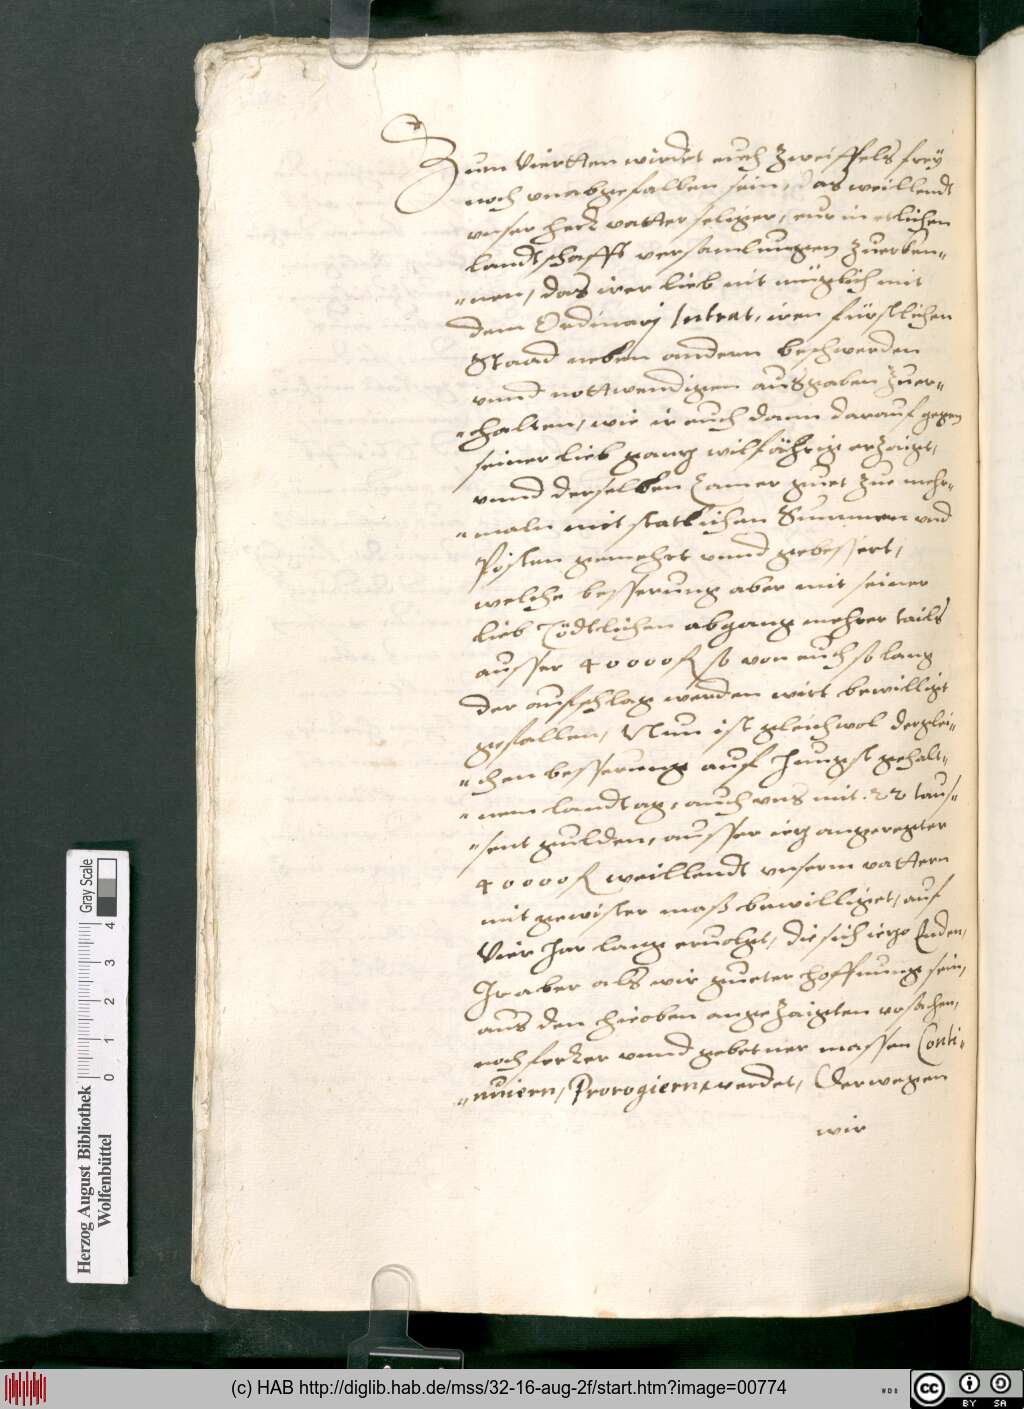 Zum Viertten wirdet euch zweiffels frey
noch unabgefallen sein, das weillendt
unser herr vatter seliger, eur in etlichen
landtschafft versamlungen zuerken-
nen, das irer lieb nit müglich mit
dem Ordinarj Intrat, iren fürstlichen
Staad neben andern beschwerden
unnd nottwendigen ausgaben zuer-
halten, wie ir euch dann darauf gegen
seiner lieb ganz wilfährig erzaigt,
unnd derselben Camer guet zue mehr-
maln mit statlichen Summen und
Posten gemehrt unnd gebessert,
welche besserung aber mit seiner
lieb Tödtlichen abgang mehrer tails
ausser 40000 fl so von euch so lang
der aufschlag werden wirt bewilligt
gefallen, Nun ist gleichwol derglei-
chen besserung auf Jungst gehalt-
nem landtag, auch uns mit 22 tau-
sent gulden, ausser iez angeregter
40000 fl weillendt unserm vattern
mit gewister maß bewilliget, auf
Vier Jar lang ervolgt, die sich iezo Enden,
Ir aber als wir gueter hoffnung sein,
aus den hieoben angezaigten ursachen,
noch ferrer unnd gebetner massen Conti-
nuiern, Prorogiern werdet, Derwegen
wir
Herzog August Bibliothek
Wolfenbüttel
0 1 2 3 4
Gray Scale
(c) HAB http://diglib.hab.de/mss/32-16-aug-2f/start.htm?image=00774
WDB
cc BY SA